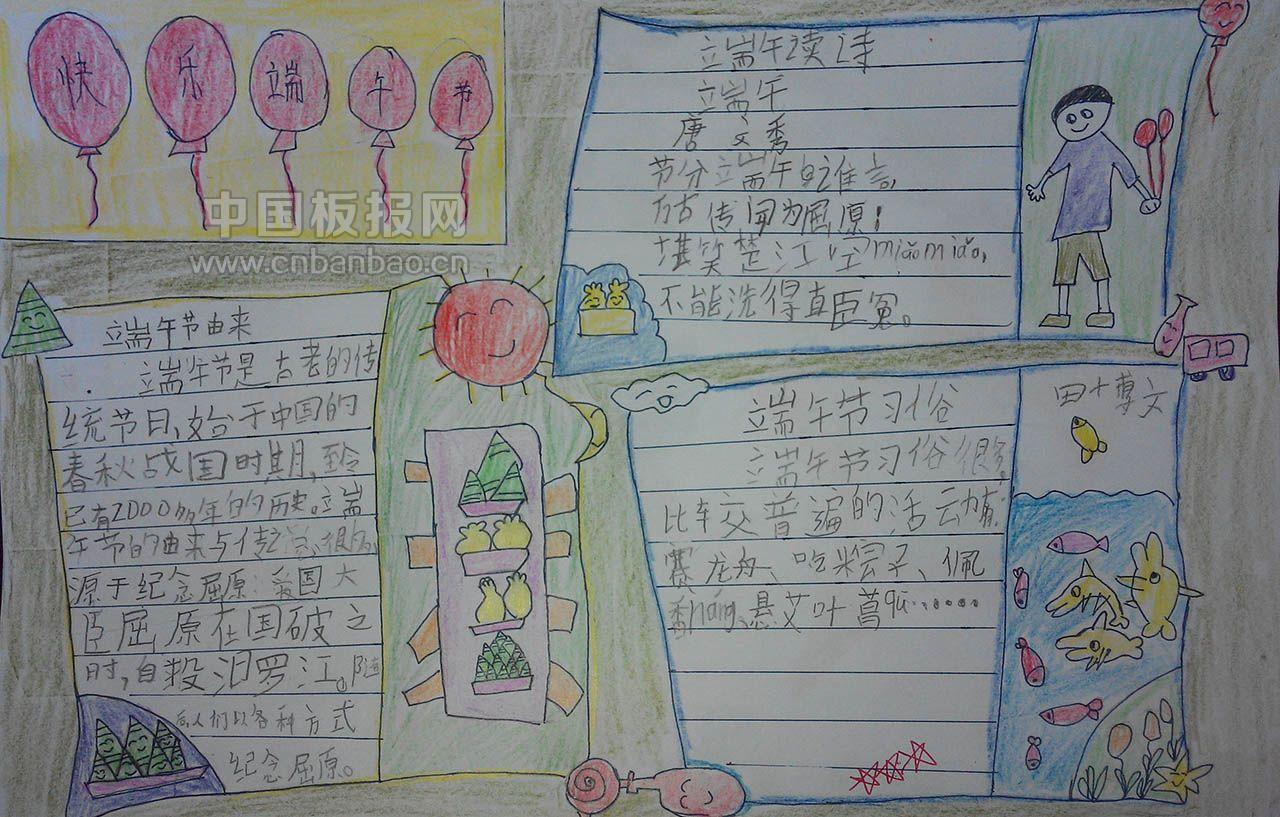 快乐端午节
中国板报网
www.cnbanbao.cn
端午节由来
端午节是古老的传
统节日,始于中国的
春秋战国时期,至今
已有2000多年的历史。端
午节的由来与传说很多,
源于纪念屈原:爱国大
臣屈原在国破之
时,自投汨罗江。随
后人们以各种方式
纪念屈原。
端午读诗
端午
唐 文秀
节分端午自谁言,
万古传闻为屈原;
堪笑楚江空miǎomiǎo,
不能洗得直臣冤。
端午节习俗
端午节习俗很多。
比较普遍的活动有
赛龙舟、吃粽子、佩
香náng、悬艾叶菖
博文